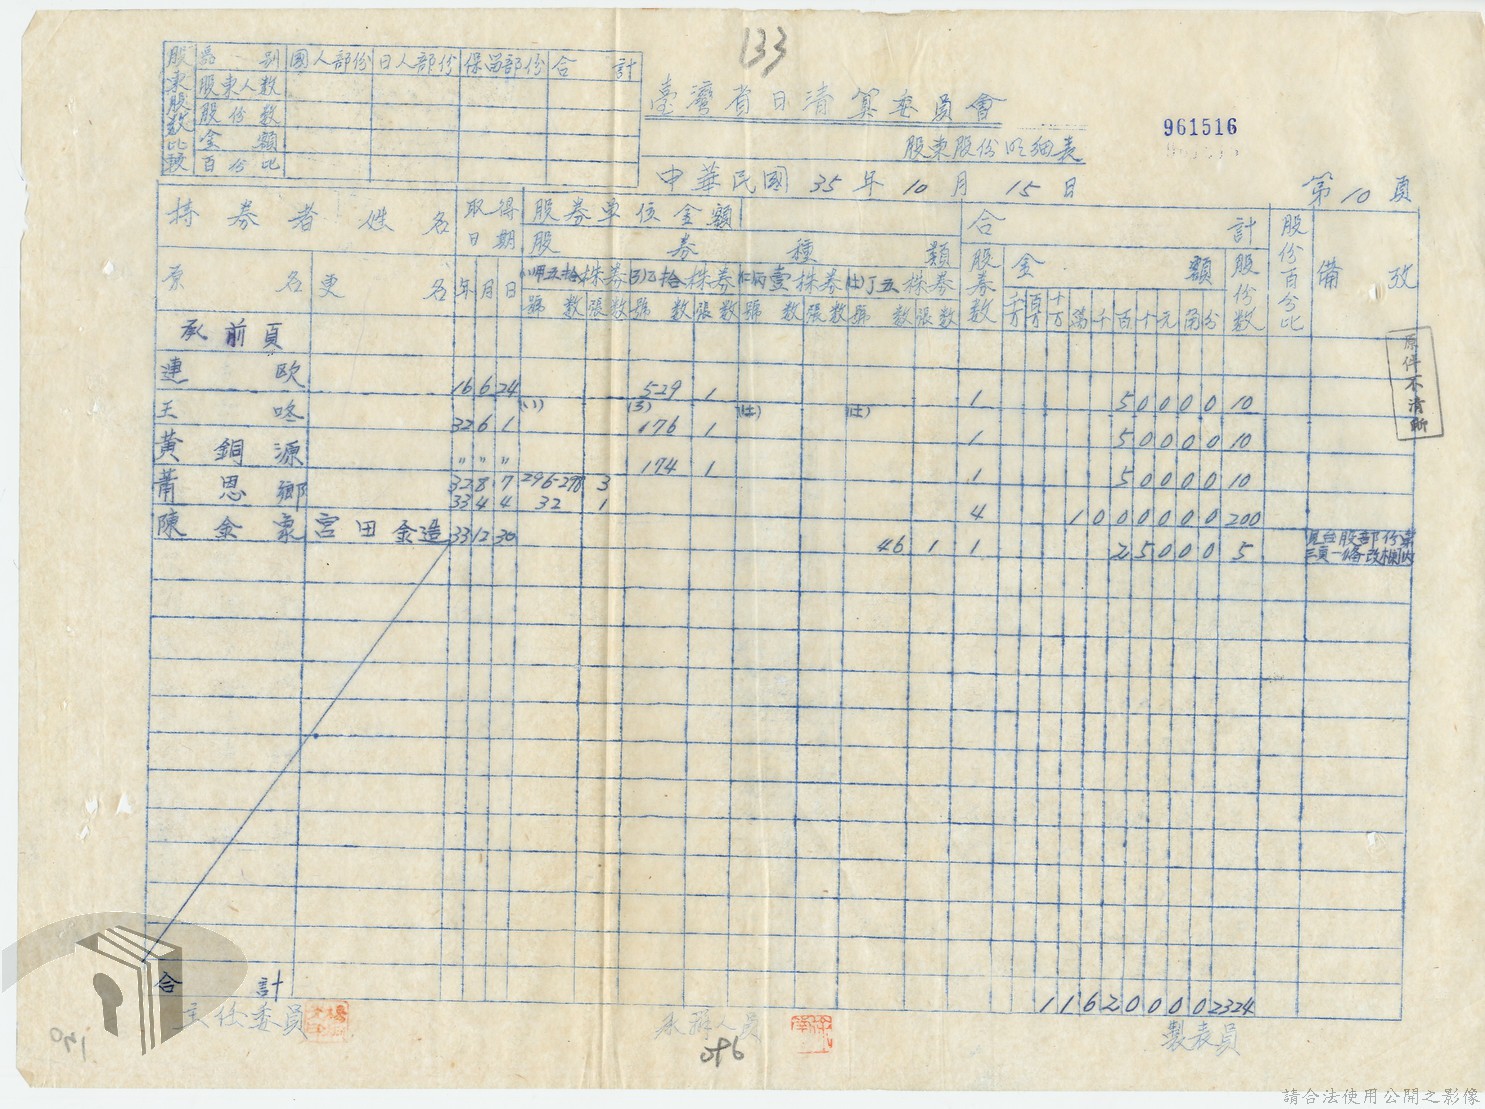 133
股東股數比較
區別 國人部份 日人部份 保留部份 合計
股東人數
股份數
金額
百分比
臺灣省日清算委員會
961516
股東股份明細表
中華民國 35 年 10 月 15 日
第 10 頁
持券者姓名 取得日期 股券單位金額 合計 股份百分比 備攷
股券種類 股券數 金額 股份數
原名 更名 年 月 日 甲五拾株券 乙拾株券 丙壹株券 丁五株券
號數 張數 號數 張數 號數 張數 號數 張數 千万 百万 十万 萬 千 百 十 元 角 份
承前頁
連欧 16 6 24 529 1 1 50000 10
王咚 32 6 1 176 1 1 50000 10
黃銅源 〃 〃 〃 174 1 1 50000 10
莆思鄉 32 8 7 296-298 3
33 4 4 32 1 4 1000000 200
陳金象 宮田金造 33 12 30 46 1 1 25000 5
原件不清晰
合計 11620000 2324
主任委員
承辦人員
製表員
086
190
請合法使用公開之影像